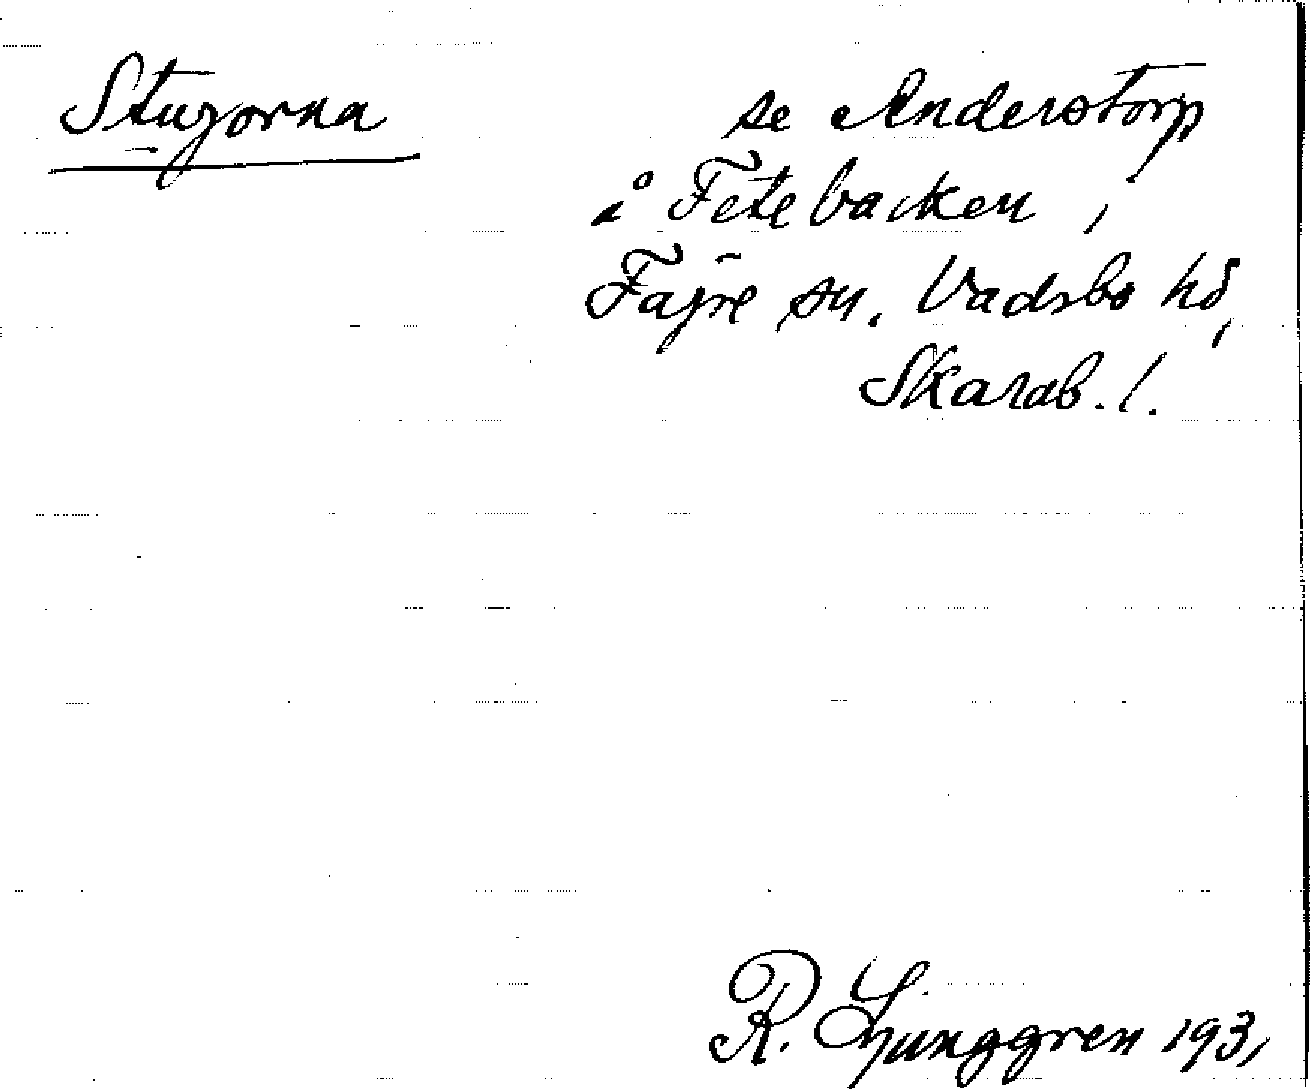 Stugorna
se Anderstorp
å Fetebacken,
Fägre sn. Vadsbo hd,
Skarab. l.
R. Ljunggren 1931